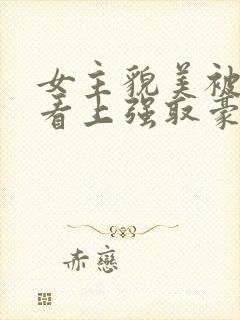 女主貌美被
看上强取豪
赤戀